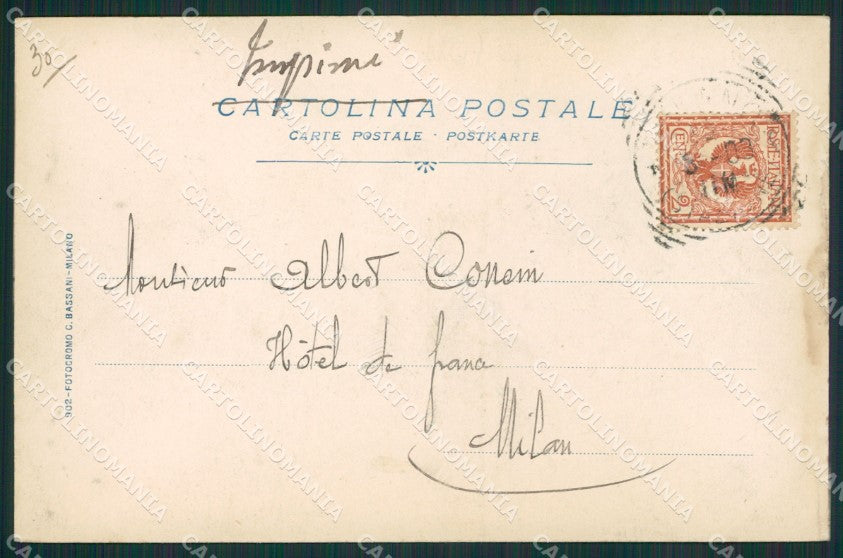 30/
Imprimé
CARTOLINA POSTALE
CARTE POSTALE · POSTKARTE
902-FOTOCROMO C. BASSANI-MILANO
Monsieur Albert Consin
Hôtel de france
Milan
CARTOLINOMANIA